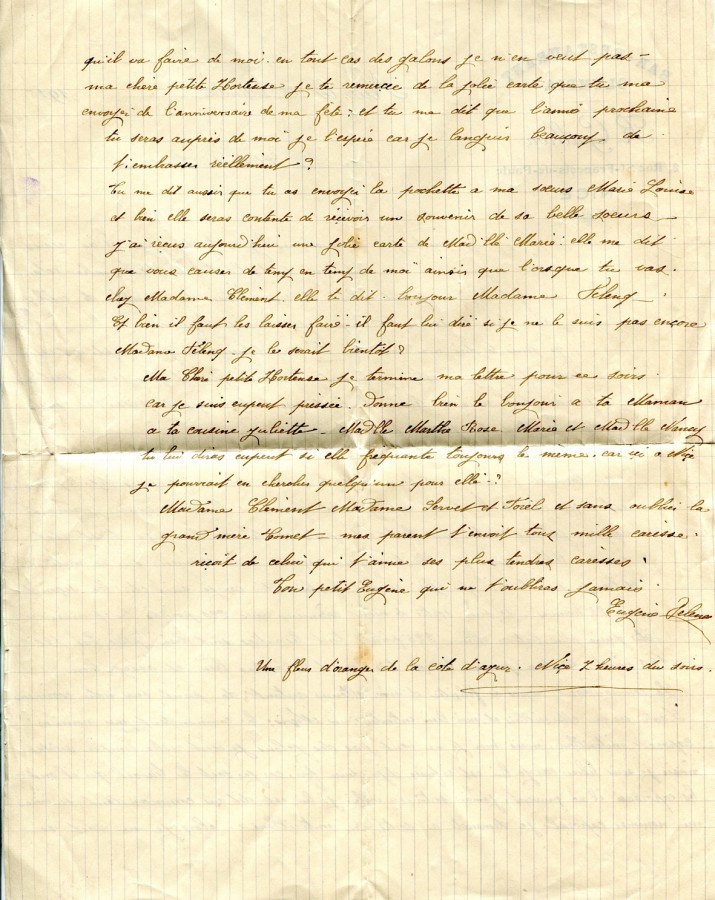 qu'il va faire de moi en tout cas des galons je n'en veut pas -
ma chère petite Hortense je te remercie de la jolie carte que tu ma
envoyer de l'anniversaire de ma fête : et tu me dit que l'année prochaine
tu seras auprès de moi je l'espère car je languis beauçoup de
t'embrasser réellement ?
Tu me dit aussir que tu as envoyer la pochette a ma sœurs Marie Louise
et bien elle seras contente de recevoir un souvenir de sa belle sœurs -
j'ai reçus aujourd'hui une jolie carte de Mad'lle Marie : elle me dit
que vous causer de temp en temp de moi ainsir que l'orsque tu vas
chez Madame Clément. elle te dit. bonjour Madame Feleng .
Et bien il faut les laisser faire - il faut lui dire si je ne le suis pas ençore
Madame Féleng. je le serait bientôt ?
Ma Chère petite Hortense je termine ma lettre pour ce soirs
car je suis pressée. Donne bien le bonjour a ta Maman
a ta cousine Juliette - Madlle Marthe Rose Marie et Madlle Nancy
tu lui diras si elle frequante toujours le même. car içi a Niçe
je pouvait en chercher quelqu'un pour elle - ?
Madame Clément Madame Servet et Forel et sans oublier la
grand mère Comet = mes parent t'envoit tous mille caresse.
reçoit de celui qui t'aime ses plus tendres caresses .
Ton petit Eugène qui ne t'oublieras jamais
Eugène Feleng
Une fleur d'oranger de la côte d'azur. Niçe 7 heures du soirs.